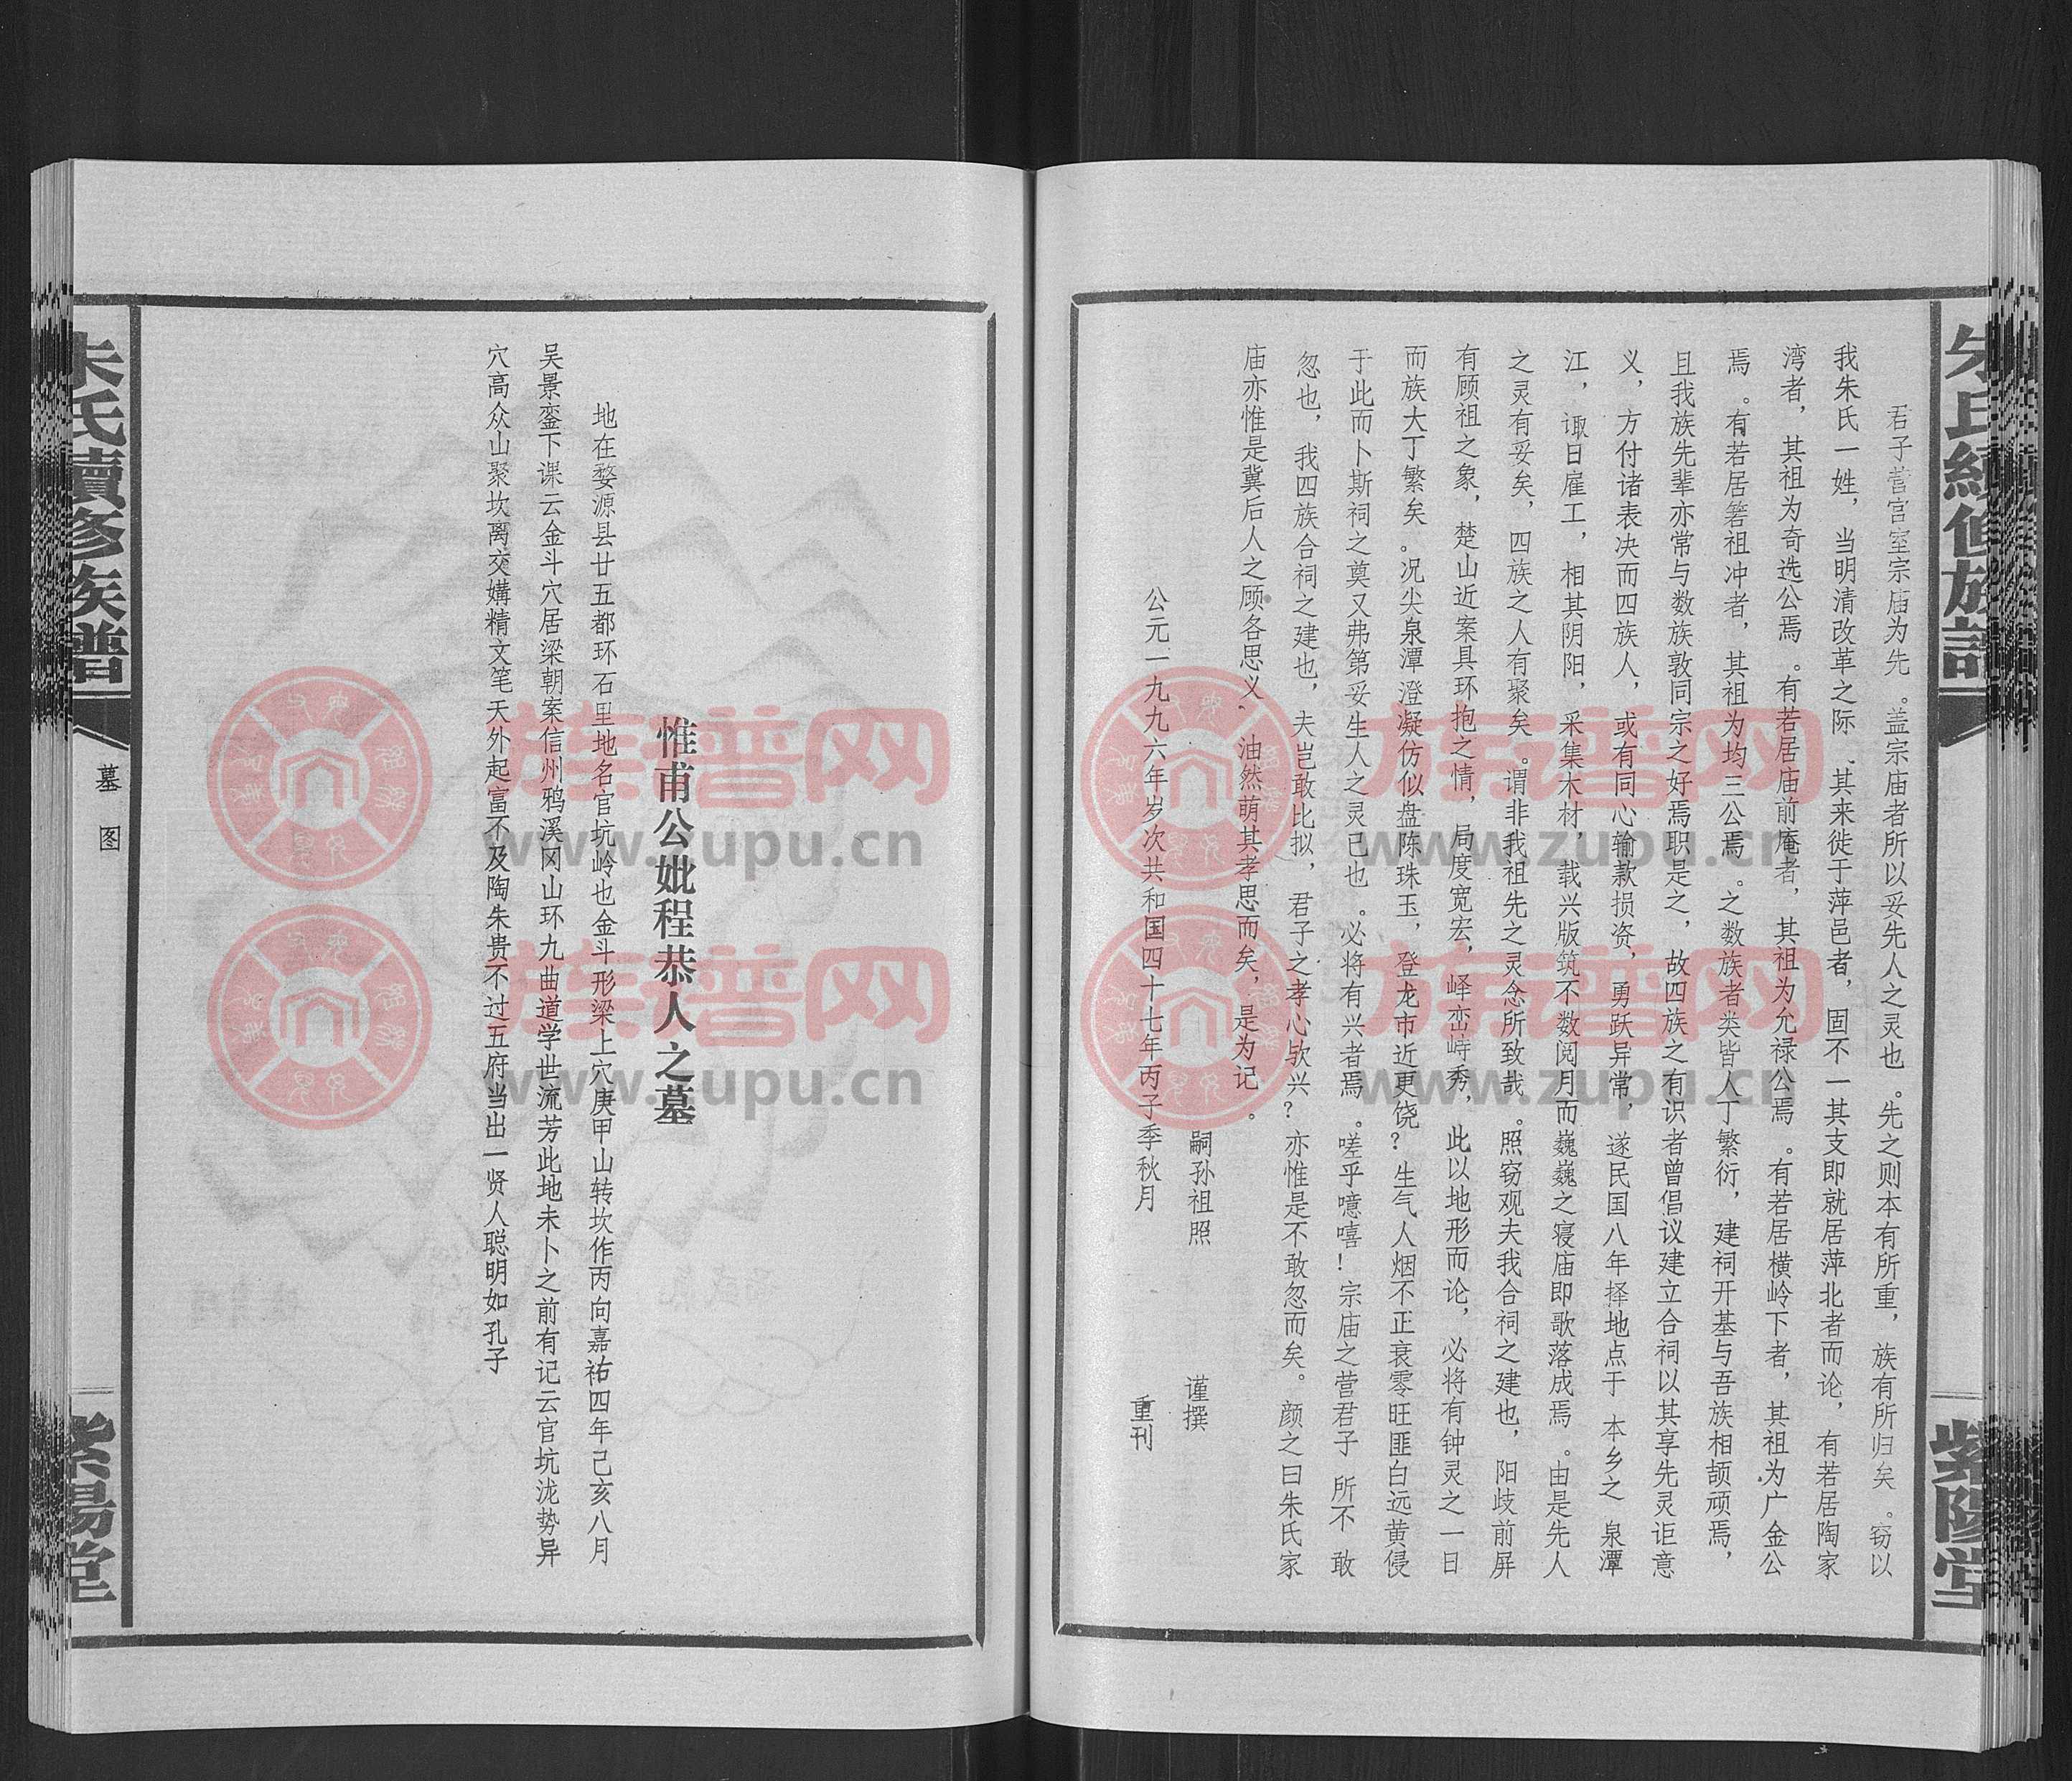 朱氏續修族譜
紫陽堂
君子营宫室宗庙为先。盖宗庙者所以妥先人之灵也。先之则本有所重，族有所归矣。窃以
我朱氏一姓，当明清改革之际，其来徙于萍邑者，固不一其支即就居萍北者而论，有若居陶家
湾者，其祖为奇选公焉。有若居庙前庵者，其祖为允禄公焉。有若居横岭下者，其祖为广金公
焉。有若居箬祖冲者，其祖为均三公焉。之数族者类皆人丁繁衍，建祠开基与吾族相颉顽焉，
且我族先辈亦常与数族敦同宗之好焉职是之，故四族之有识者曾倡议建立合祠以其享先灵讵意
义，方付诸表决而四族人，或有同心输款损资，勇跃异常，遂民国八年择地点于本乡之泉潭
江，诹日雇工，相其阴阳，采集木材，载兴版筑不数阅月而巍巍之寝庙即歌落成焉。由是先人
之灵有妥矣，四族之人有聚矣。谓非我祖先之灵念所致哉。照窃观夫我合祠之建也，阳歧前屏
有顾祖之象，楚山近案具环抱之情，局度宽宏，峄峦峙秀，此以地形而论，必将有钟灵之一日
而族大丁繁矣。况尖泉潭澄凝仿似盘陈珠玉，登龙市近更饶？生气人烟不正衰零旺匪白远黄侵
于此而卜斯祠之奠又弗第妥生人之灵已也。必将有兴者焉。嗟乎噫嘻！宗庙之营君子所不敢
忽也，我四族合祠之建也，夫岂敢比拟，君子之孝心欤兴？亦惟是不敢忽而矣。颜之曰朱氏家
庙亦惟是冀后人之顾各思义，油然萌其孝思而矣，是为记。
嗣孙祖照 谨撰
公元一九九六年岁次共和国四十七年丙子季秋月 重刊
惟甫公妣程恭人之墓
地在婺源县廿五都环石里地名官坑岭也金斗形梁上穴庚甲山转坎作丙向嘉祐四年己亥八月
吴景鸾下课云金斗穴居梁朝案信州鸦溪冈山环九曲道学世流芳此地未卜之前有记云官坑泷势异
穴高众山聚坎离交媾精文笔天外起富不及陶朱贵不过五府当出一贤人聪明如孔子
朱氏續修族譜
墓图
紫陽堂
族谱网
www.zupu.cn
族谱网
www.zupu.cn
族谱网
www.zupu.cn
族谱网
www.zupu.cn